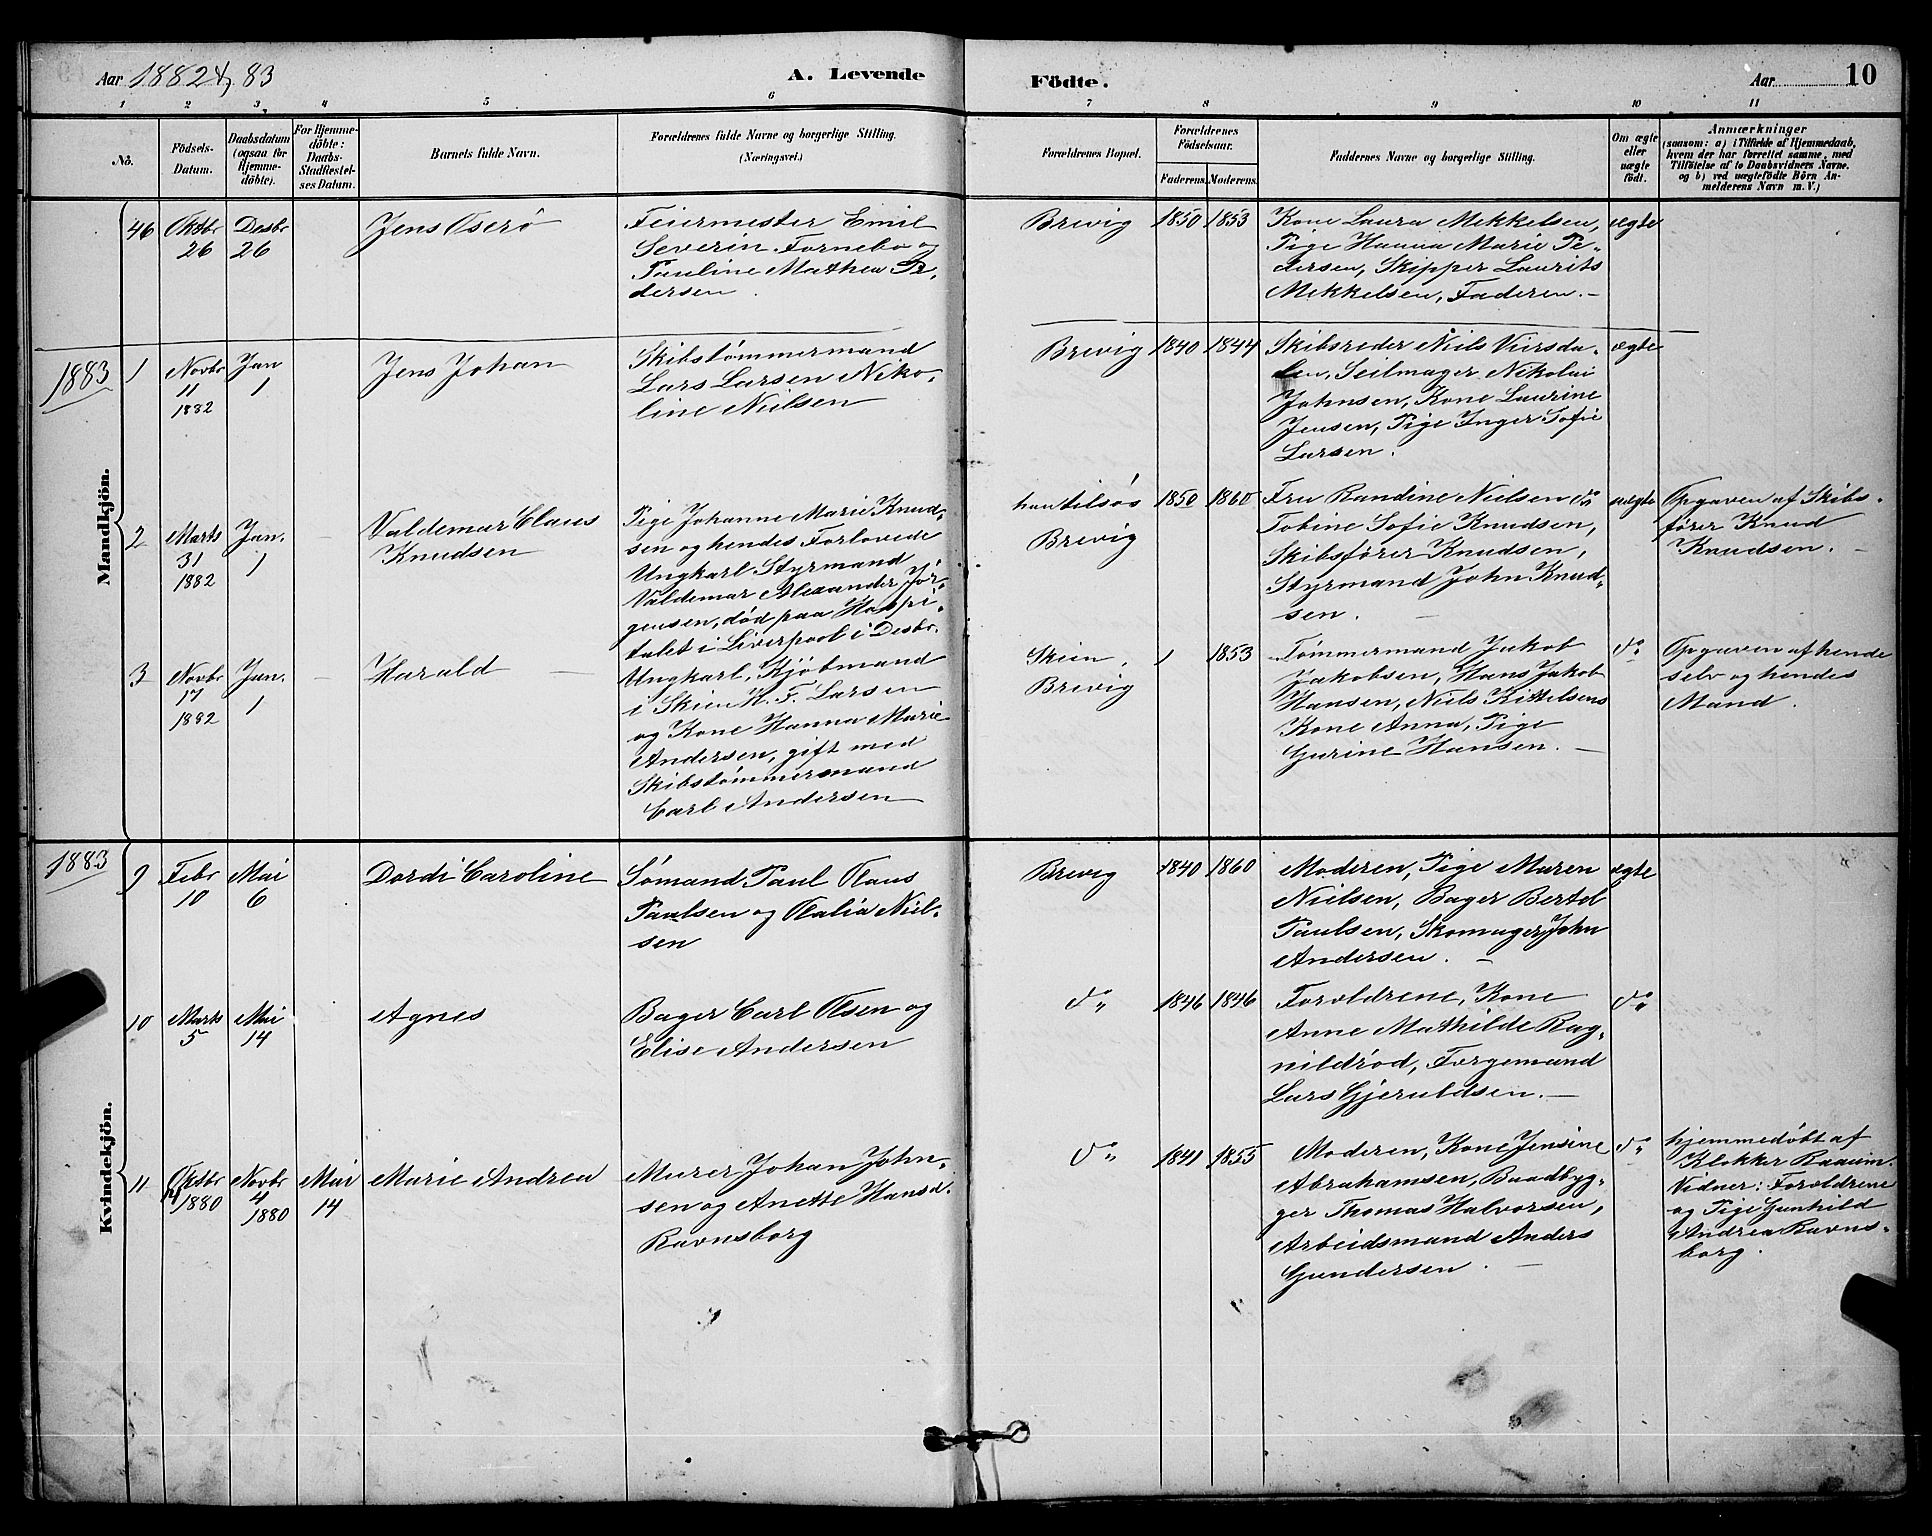 Aar 1882 & 83
A. Levende
Födte.
Aar
10
1 2 3 4 5 6 7 8 9 10 11
No.
Födsels-
Datum.
Daabsdatum
(ogsaa for
Hjemme-
döbte).
For Hjemme-
döbte:
Daabs-
Stadfæstel-
ses Datum.
Barnets fulde Navn.
Forældrenes fulde Navne og borgerlige Stilling.
(Næringsvei.)
Forældrenes Bopæl.
Forældrenes
Födselsaar.
Faderens. Moderens.
Faddernes Navne og borgerlige Stilling.
Om ægte
eller
uægte
födt.
Anmærkninger
(saasom: a) i Tilfælde af Hjemmedaab,
hvem der har forrettet samme, med
Tilföielse af to Daabsvidners Navne.
og b) ved uægtefödte Börn An-
melderens Navn m. V.)
Mandkjön.
46
Oktbr
26
Desbr
26
Jens Oserö
Feiermester Emil
Severin Fornebo og
Pauline Mathea Pe-
dersen.
Brevig
1850 1853
Kone Laura Mekkelsen,
Pige Hanna Marie Pe-
dersen, Skipper Laurits
Mekkelsen, Faderen.
ægte
1883
1
Novbr
11
1882
Jan
1
Jens Johan
Skibstömmermand
Lars Larsen Niko-
line Nielsen
Brevig
1840 1844
Skibsreder Niels Viersda-
len, Seilmager Nikolai
Johnsen, Kone Laurine
Jensen, Pige Inger Sofie
Larsen.
ægte
2
Marts
31
1882
Jan.
1
Valdemar Claus
Knudsen
Pige Johanne Marie Knud-
sen og hendes Forlovede
Ungkarl Styrmand
Valdemar Alexander Jör-
gensen, död paa Hospi-
talet i Liverpool i Desbr.
han tilsös
Brevig
1850 1860
Fru Randine Nielsen do
Tobine Sofie Knudsen,
Skibsförer Knudsen,
Styrmand John Knud-
sen.
uægte
Opgaven af Skibs-
förer Knud
Knudsen.
3
Novbr
17
1882
Jan.
1
Harald
Ungkarl, Kjöbmand
i Skien H. F. Larsen
og Kone Hanna Marie
Andersen, gift med
Skibstömmermand
Carl Andersen
Skien,
Brevig
1853
Tömmermand Jakob
Jakobsen, Hans Jakob
Hansen, Niels Kittelsens
Kone Anna, Pige
Gurine Hansen.
do
Opgaven af hende
selv og hendes
Mand.
Kvindekjön.
1883
9
Febr
10
Mai
6
Dordi Caroline
Sömand Paul Olaus
Paulsen og Olalia Niel-
sen
Brevig
1840 1860
Moderen, Pige Maren
Nielsen, Bager Bertel
Paulsen, Skomager John
Andersen.
ægte
10
Marts
5
Mai
14
Agnes
Bager Carl Olsen og
Elise Andersen
do "
1846 1846
Forældrene, Kone
Anne Mathilde Rag-
nildröd, Færgemand
Lars Gjeruldsen.
do "
11
Oktbr
1880
Novbr
4
1880
Mai
14
Marie Andrea
Murer Johan John-
sen og Anette Hansd.
Ravnsborg
do "
1841 1855
Moderen, Kone Jensine
Abrahamsen, Baadbyg-
ger Thomas Halvorsen,
Arbeidsmand Anders
Gundersen.
do "
hjemmedöbt af
Klokker Raaum.
Vidner: Forældrene
og Pige Gunhild
Andrea Ravns-
borg.